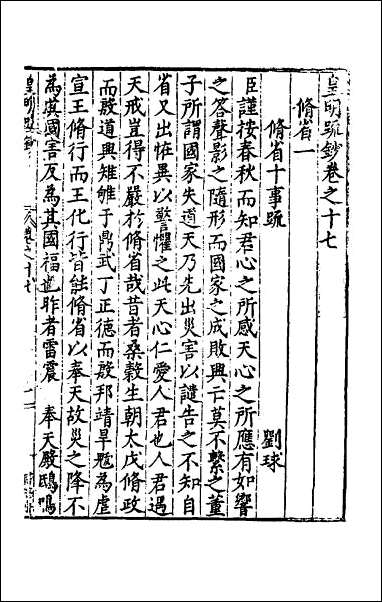 皇明疏鈔卷之十七
脩省一
脩省十事疏 劉球
臣謹按春秋而知君心之所感天心之所應有如響
之答聲影之隨形而國家之成敗興亡莫不繫之董
子所謂國家失道天乃先出災害以譴告之不知自
省又出恠異以警懼之此天心仁愛人君也人君遇
天戒豈得不嚴於脩省哉昔者桑榖生朝太戊脩政
而殷道興雉雊于鼎武丁正德而殷邦靖旱魃為虐
宣王脩行而王化行皆能脩省以奉天故災之降不
為其國害反為其國福也昨者雷震 奉天殿鴟鳴
皇明疏鈔 卷之十七